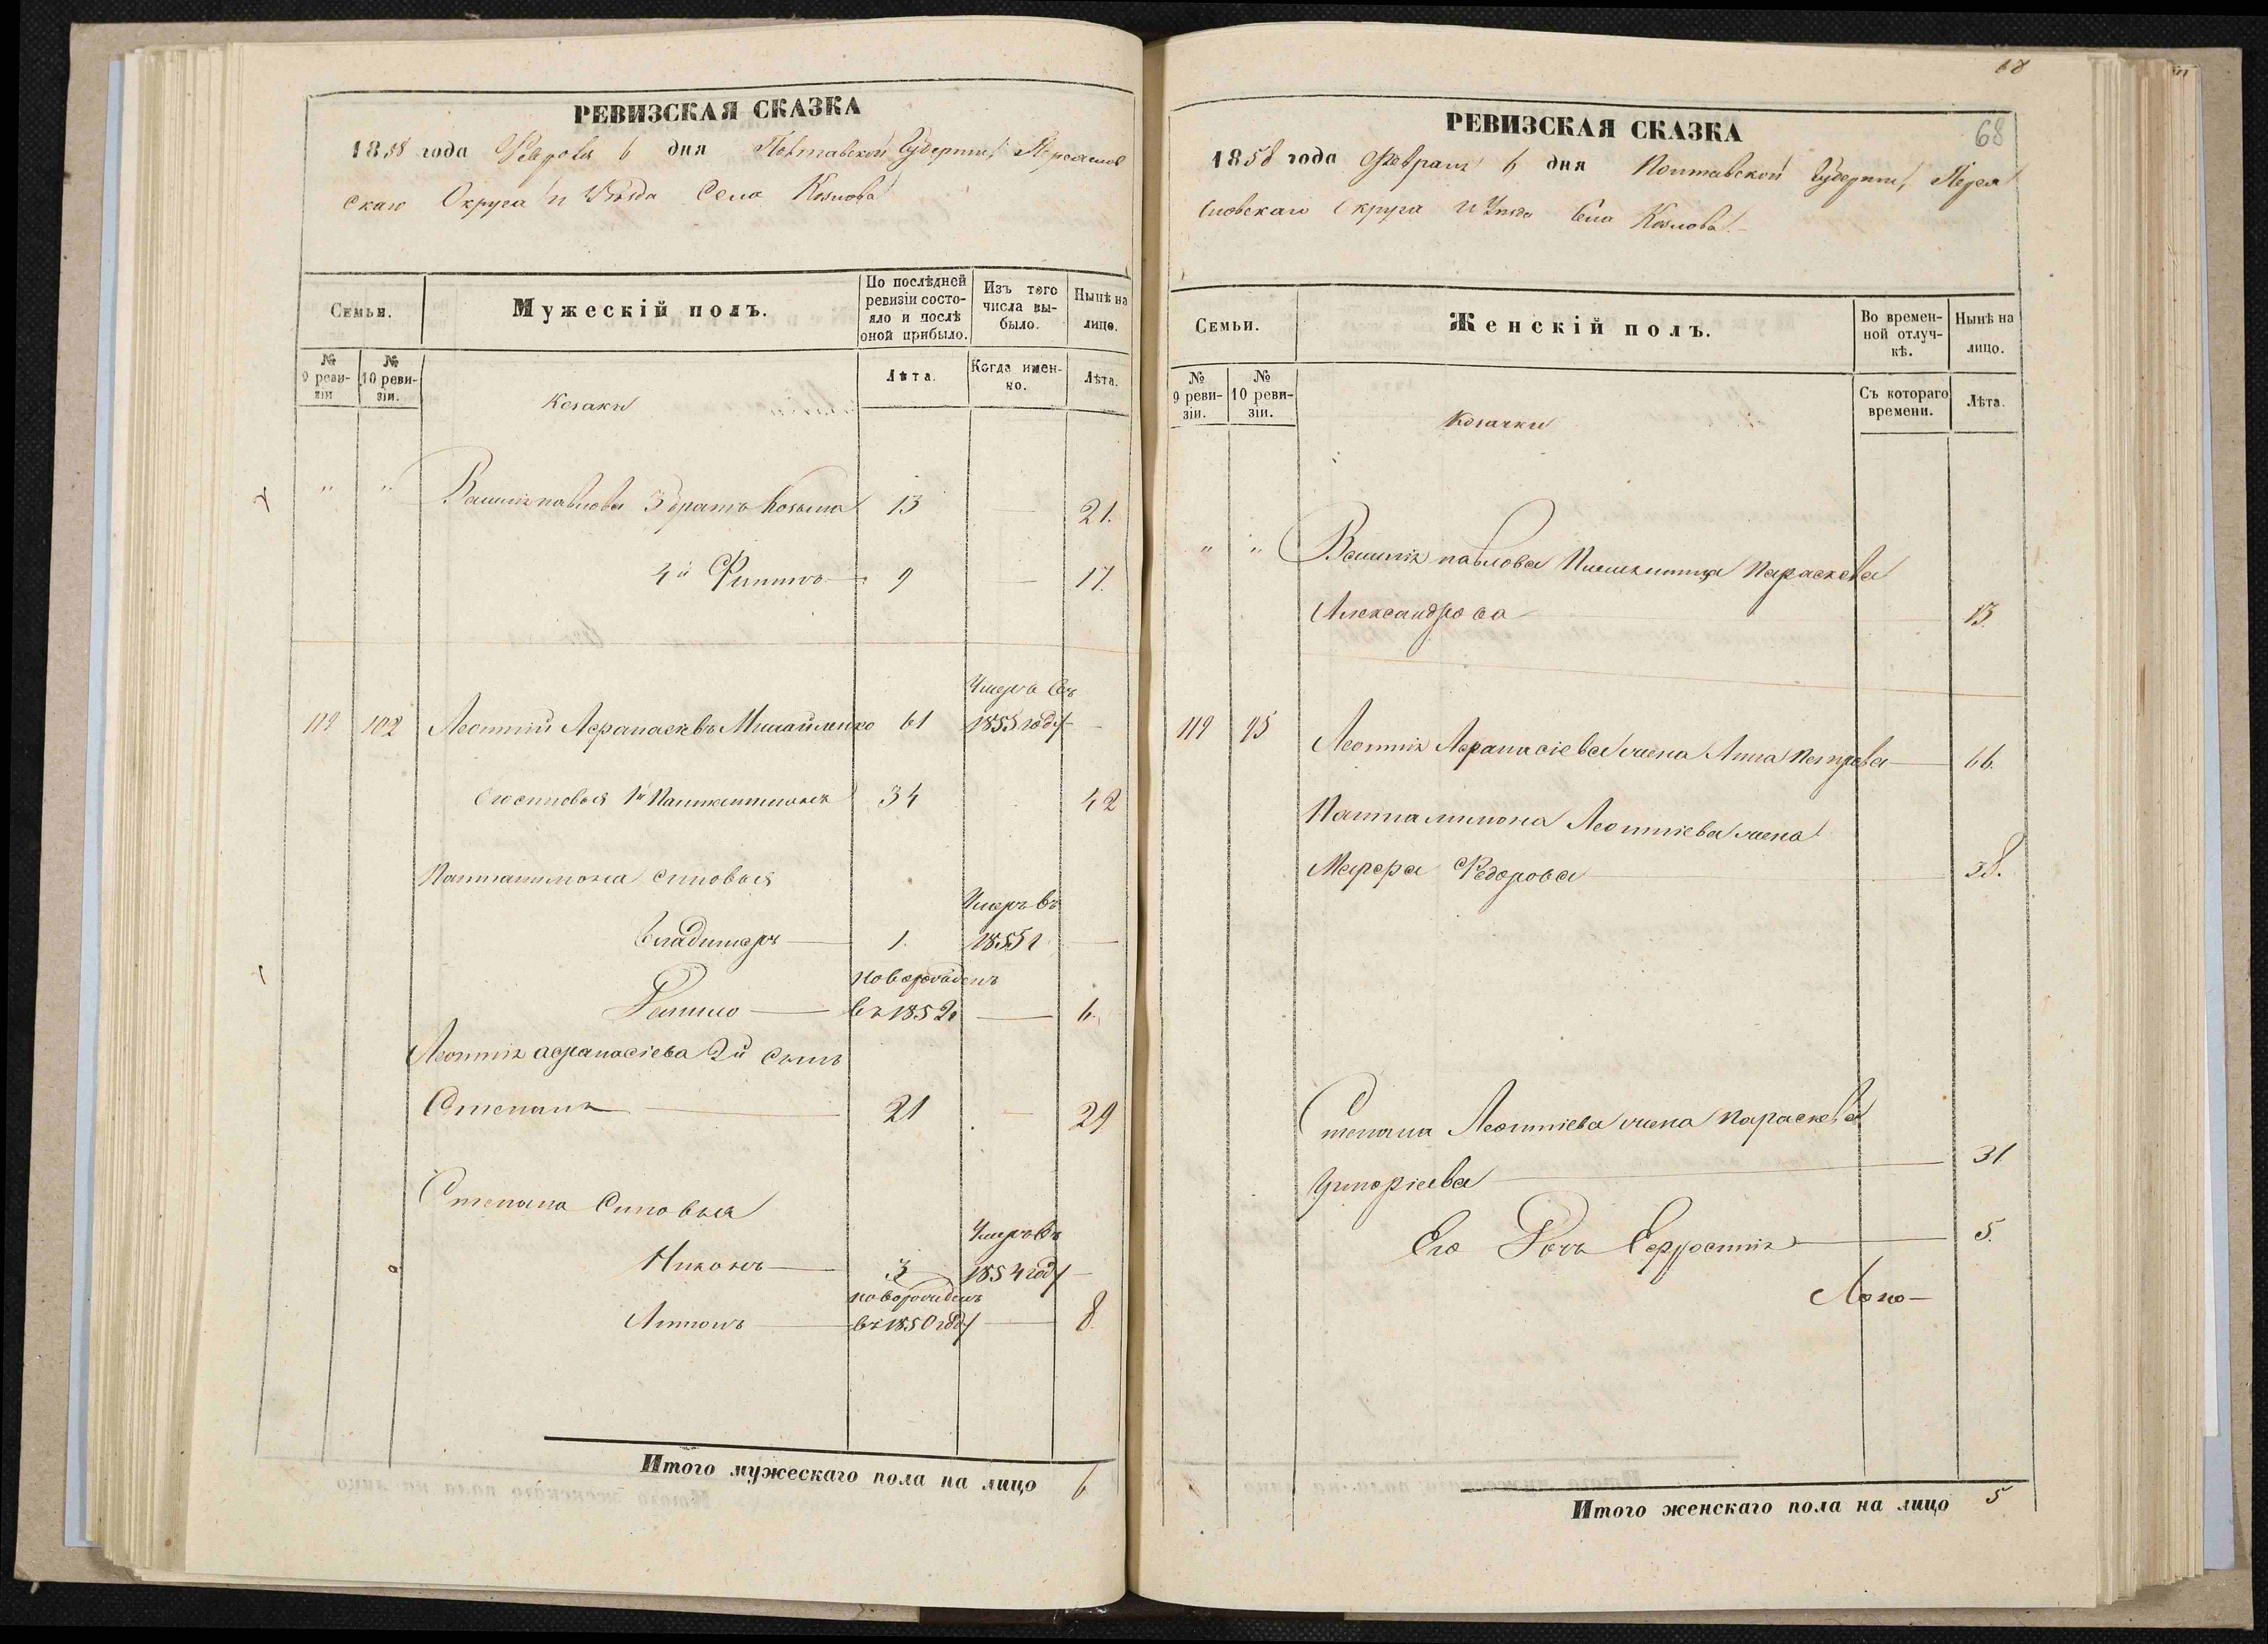 РЕВИЗСКАЯ СКАЗКА
1858 года Февраля 6 дня Полтавской Губернiи, Переяслов
скаго Округа и Уѣзда Села Козлова
Семьи.
Мужескiй полъ.
По послѣдней ревизiи состояло и послѣ оной прибыло.
Изъ того числа выбыло.
Нынѣ на лицо.
№ 9 ревизiи
№ 10 ревизiи.
Козаки
Лѣта.
Когда именно.
Лѣта.
" " павлова 3 братъ Козьма 13 — 21.
4й Филипъ — 9 — 17.
Умеръ въ
119 102 Леонтiй Афанасiевъ Михайленко 61 1855 году —
Его сыновья 1й Панталимонъ 34 42
Панталимона сыновья
Умеръ въ
Владимеръ — 1. 1855 г —
новорожденъ
— въ 1852 г — 6.
Леонтiя афанасiева 2й сынъ
Степанъ — 21 — 29
Степана Сыновья
Умеръ въ
Никонъ — 3 1854 году —
новорожденъ
Антонъ — въ 1850 году — 8.
Итого мужескаго пола на лицо 6
68
68
РЕВИЗСКАЯ СКАЗКА
1858 года Февраля 6 дня Полтавской Губернiи, Перея
словскаго Округа и Уѣзда Села Козлова.
Семьи.
Женскiй полъ.
Во временной отлучкѣ.
Нынѣ на лицо.
№ 9 ревизiи.
№ 10 ревизiи.
Козачки
Съ котораго времени.
Лѣта.
" " павлова Племянница Параскева
Александрова — 13.
119 95 Леонтiя Афанасiева жена Анна Петрова — 66.
Панталимона Леонтiева жена
Марфа Федорова — 38.
Степана Леонтiева жена Параскева
Григорiева — 31
Его Дочь — 5.
Итого женскаго пола на лицо 5